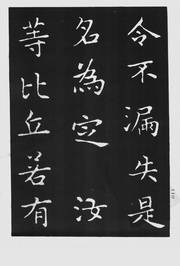 令不漏失是
名為定汝
等比丘若有